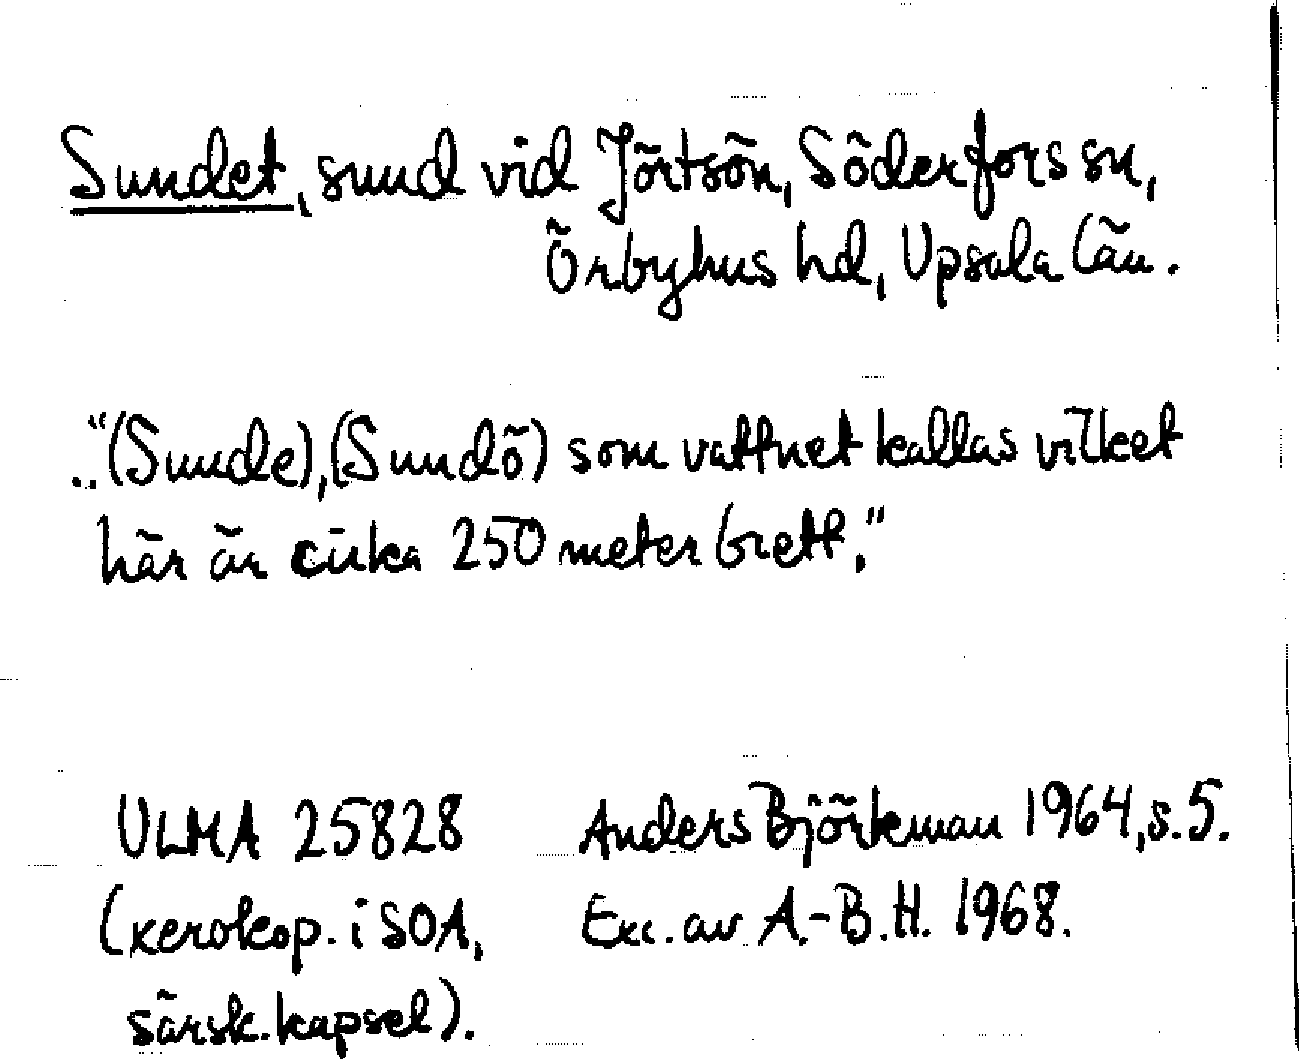 Sundet, sund vid Jörtsön, Söderfors sn,
Örbyhus hd, Upsala län.
.."(Sunde),(Sundö) som vattnet kallas vilket
här är cirka 250 meter brett."
ULMA 25828 Anders Björkman 1964, s. 5.
(xerokop. i SOA, Exc. av A.-B.H. 1968.
särsk. kapsel).